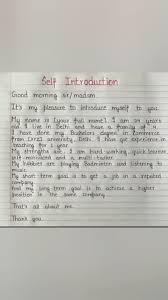 Self Introduction
Good morning sir/madam
It's my pleasure to introduce myself to you.
My name is [your full name]. I am 24 years
old. I live in Delhi and have a family of 4.
I have done my Bachelors degree in Commerce
from University, Delhi. I have got experience in
teaching for 1 year.
My strengths are: I am hard working, quick learner
self motivated and a multi-tasker.
My Hobbies are playing Badminton and listening to
music.
My short term goal is to get a job in a reputed
company.
And my long-term goal is to achieve a higher
position in the same company.
That's all about me.
Thank you.